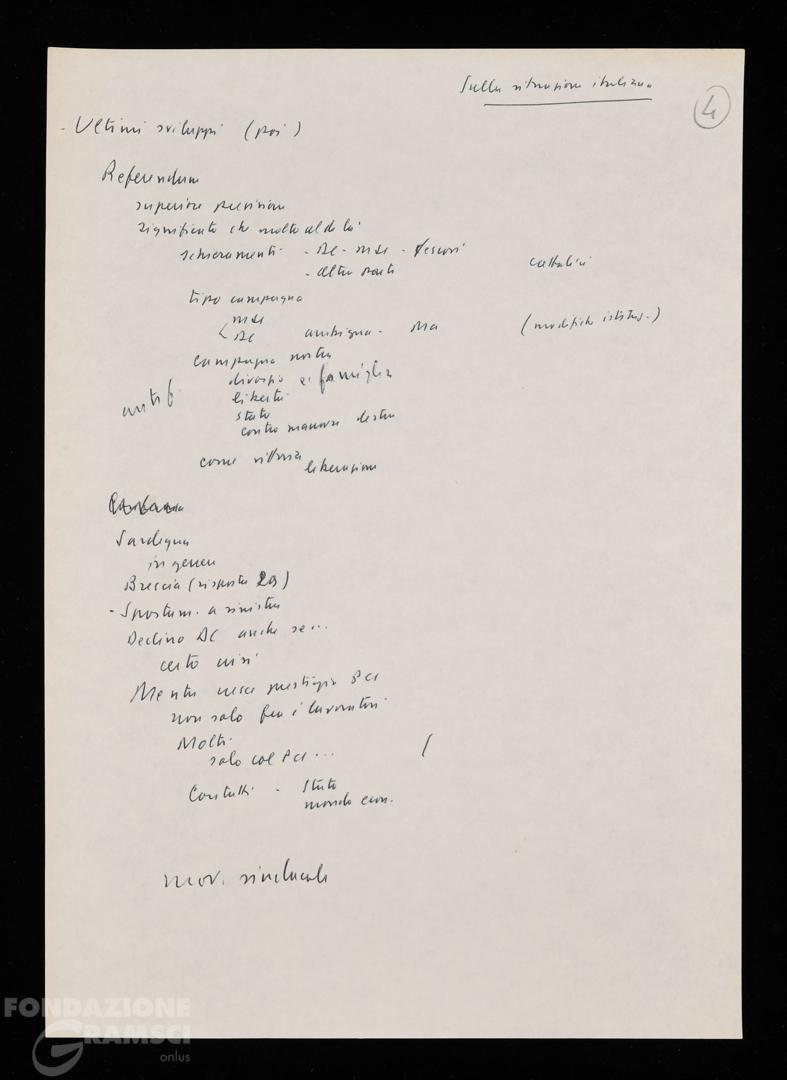 Sulla situazione italiana
4
- Ultimi sviluppi (poi)
Referendum
superiore previsioni
significato che molto al di là
schieramenti - DC - MSI - Vescovi
- altra parte
cattolici
tipo campagna
MSI
DC ambigua - Ma (modifiche istituz.)
campagna nostra
divorzio e famiglia
antif.
libertà
stato
contro manovre destra
come vittoria liberazione
Sardegna
in genere
Brescia (risposta
- Spostam. a sinistra
Declino DC anche se...
certo crisi
Mentre cresce prestigio PCI
non solo fra i lavoratori
Molti
solo col PCI ...
(
Contatti - Stato
mondo econ.
mov. sindacale
FONDAZIONE
GRAMSCI
onlus